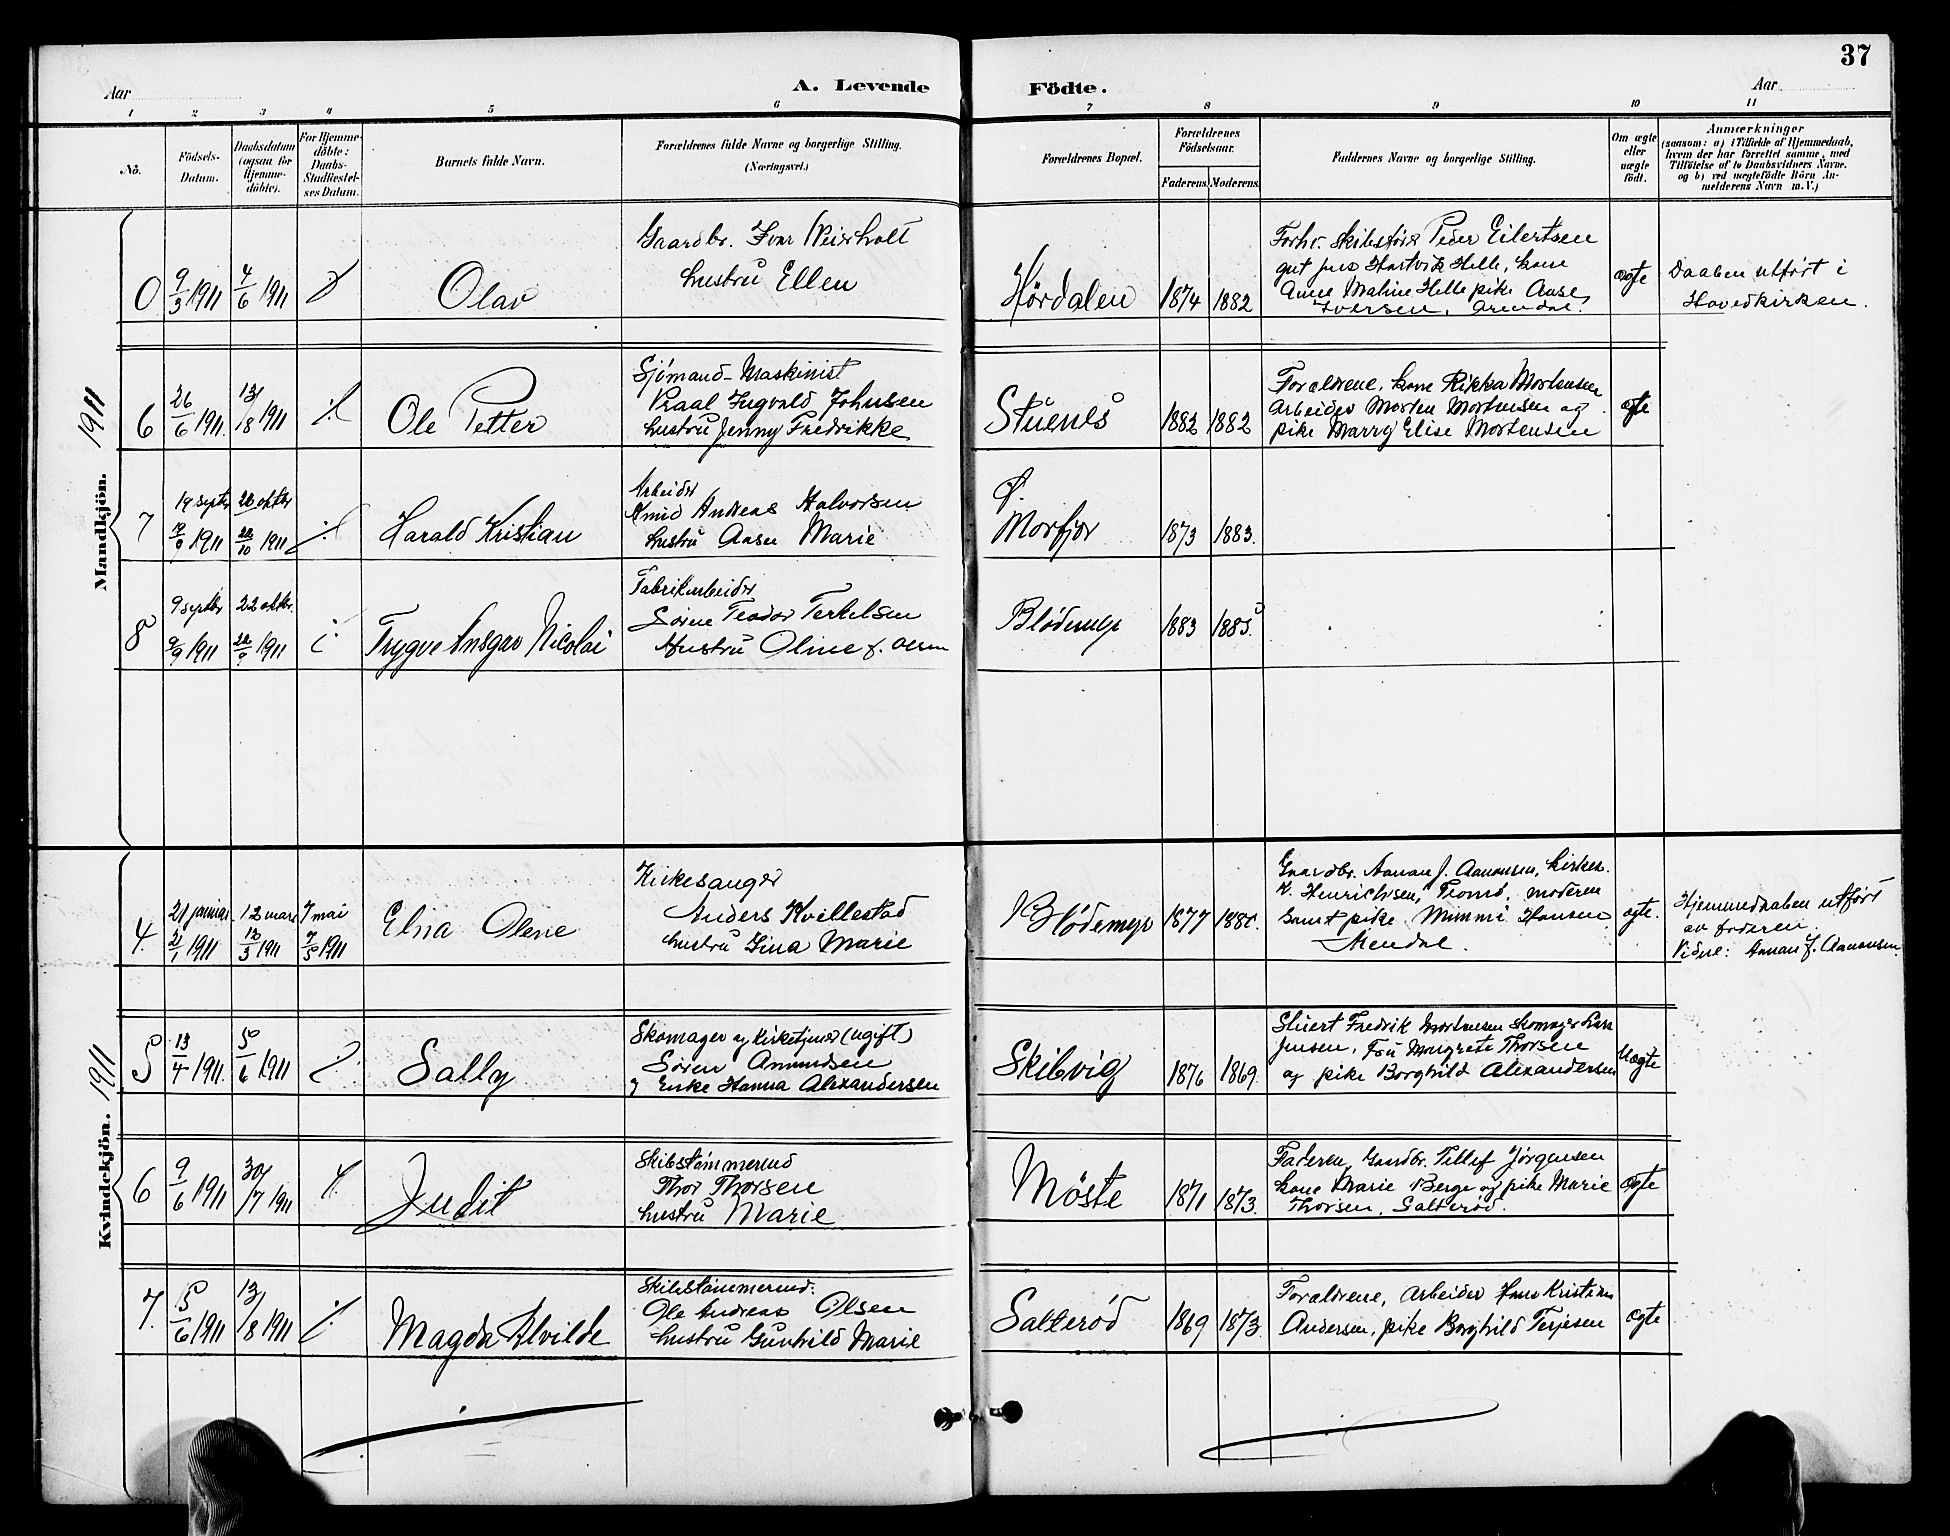 37
Aar
A. Levende Födte.
Aar
1 2 3 4 5 6 7 8 9 10 11
No.
Födsels-Datum.
Daabsdatum (ogsaa for Hjemme-döbte).
For Hjemme-döbte: Daabs-Stadfæstel-ses Datum.
Barnets fulde Navn.
Forældrenes fulde Navne og borgerlige Stilling. (Næringsvei.)
Forældrenes Bopæl.
Forældrenes Födselsaar.
Faderens. Moderens.
Faddernes Navne og borgerlige Stilling.
Om ægte eller uægte födt.
Anmærkninger
(saasom: a) i Tilfælde af Hjemmedaab, hvem der har forrettet samme, med Tilföielse af to Daabsvidners Navne, og b) ved uægtefödte Börn An-melderens Navn m. V.)
Mandkjön. 1911
0 9/3 1911 4/6 1911
Olav
Gaardbr. Ivar Weierholt
hustru Ellen
Hørdalen 1874 1882
Forhv. skibsfører Peder Eilertsen
gut Jens Hartvik Helle, kone
Anne Maline Helle pike Aase
Iversen, Arendal.
ægte
Daaben utført i
Hovedkirken.
6 26/6 1911. 13/8 1911
Ole Petter
Sjømand-Maskinist
Paal Ingvald Johnsen
hustru Jenny Fredrikke
Stuenes 1882 1882
Forældrene, kone Rikka Mortensen
Arbeider Morten Mortensen og
pike Marry Elise Mortensen
ægte
7 19 septbr 1911 oktbr 1911
Harald Kristian
Arbeider
Andreas Halvorsen
hustru Aasen Marie
Ø.
Morfjær 1873 1883.
8 9 septbr 9/9 1911 22 oktbr. 1911
Trygve Ansgar Nicolai
Fabrikarbeider
Søren Teodor Terkelsen
Hustru Oline f. Olsen
Blødemyr 1883 1885.
Kvindekjön. 1911
4. 21 januar 21/1 1911 12 mars 12/3 1911 7 mai 7/5 1911
Elna Olene
Kirkesanger
Anders Kvillestad
hustru Gina Marie
Blødemyr 1877 1880.
Gaardbr. Aanan J. Aanonsen, kirkes.
K. Henrichsen, Tromø, moderen
samt pike Mimmi Hansen
Arendal.
ægte.
Hjemmedaaben utført
av faderen.
Vidne: Aanan J. Aanonsen.
5 13/4 1911. 5/6 1911
Sally
Skomager og Kirketjener (ugift)
Søren Amundsen
og Enke Hanna Alexandersen
Skilvig 1876 1869.
Stuert Fredrik Mortensen skomager Lars
Jensen, Fru Margrete Thorsen
og pike Borghild Alexandersen
Uægte
6 9/6 1911 30/7 1911
Judit
Skibstømmermd
Thor Thorsen
hustru Marie
Møste 1871 1873.
Faderen, Gaardbr. Tellef Jørgensen
kone Marie Berge og pike Marie
Thorsen, Salterød.
ægte
7. 5/6 1911 13/8 1911
Magda Alvilde
Skibstømmermd.
Ole Andreas Olsen
hustru Gunhild Marie
Salterød 1869 1873.
Forældrene, Arbeider Hans Kristian
Andersen, pike Borghild Terjesen
ægte